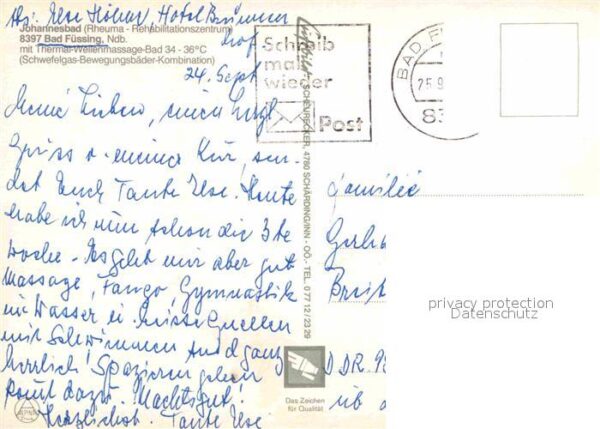 Abs: Ilse Höhne, Hotel Brunnen
hof
Johannesbad (Rheuma - Rehabilitationszentrum)
8397 Bad Füssing, Ndb.
mit Thermal-Wellenmassage-Bad 34 - 36°C
(Schwefelgas-Bewegungsbäder-Kombination)
24. Sept.
Meine Lieben, einen
Gruss v. meiner Kur, sen-
det Euch Tante Ilse. Heute
habe ich nun schon die 3te
Woche. Es geht mir aber gut
Massage, Fango, Gymnastik
im Wasser u. heisse Quellen
mit Schwimmen sind ganz
herrlich! Spazieren gehen
kommt dazu. Machts gut!
Herzlichst. Tante Ilse
Schreib
mal
wieder
Post
BAD F
25.9
83
SCHÄRDING/INN - OÖ. - TEL. 0 77 12 / 23 29
Familie
DDR 9
privacy protection
Datenschutz
Das Zeichen
für Qualität